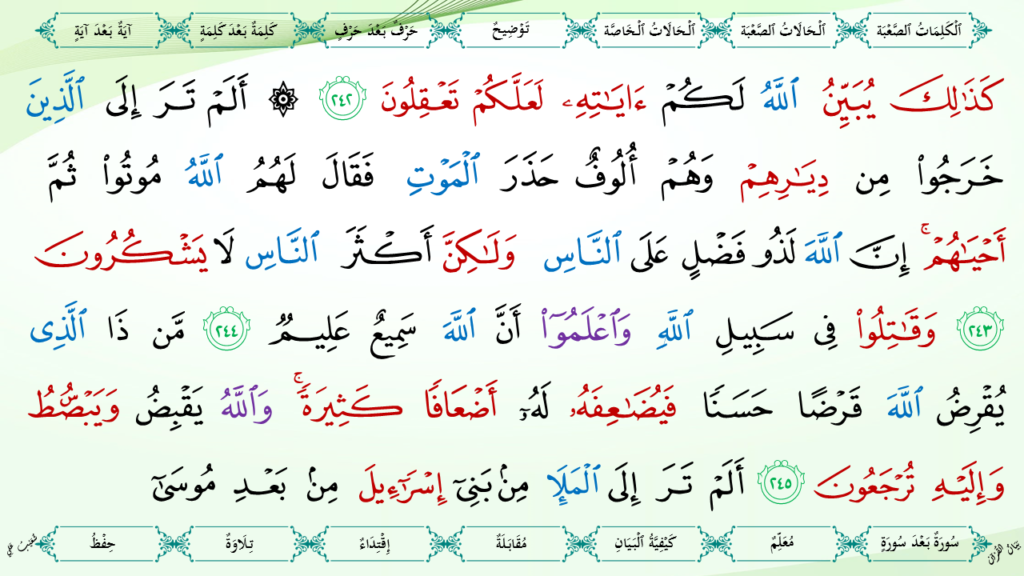 اَلْكَلِمَاتُ الصَّعْبَة اَلْحَالَاتُ الصَّعْبَة اَلْحَالَاتُ الْخَاصَّة تَوْضِيحٌ حَرْفٌ بَعْدَ حَرْفٍ كَلِمَةٌ بَعْدَ كَلِمَةٍ آيَةٌ بَعْدَ آيَةٍ
كَذَٰلِكَ يُبَيِّنُ ٱللَّهُ لَكُمْ ءَايَـٰتِهِۦ لَعَلَّكُمْ تَعْقِلُونَ ٢٤٢ ۞ أَلَمْ تَرَ إِلَى ٱلَّذِينَ
خَرَجُوا۟ مِن دِيَـٰرِهِمْ وَهُمْ أُلُوفٌ حَذَرَ ٱلْمَوْتِ فَقَالَ لَهُمُ ٱللَّهُ مُوتُوا۟ ثُمَّ
أَحْيَـٰهُمْ ۚ إِنَّ ٱللَّهَ لَذُو فَضْلٍ عَلَى ٱلنَّاسِ وَلَـٰكِنَّ أَكْثَرَ ٱلنَّاسِ لَا يَشْكُرُونَ
٢٤٣ وَقَـٰتِلُوا۟ فِى سَبِيلِ ٱللَّهِ وَٱعْلَمُوٓا۟ أَنَّ ٱللَّهَ سَمِيعٌ عَلِيمٌ ٢٤٤ مَّن ذَا ٱلَّذِى
يُقْرِضُ ٱللَّهَ قَرْضًا حَسَنًا فَيُضَـٰعِفَهُۥ لَهُۥٓ أَضْعَافًا كَثِيرَةً ۚ وَٱللَّهُ يَقْبِضُ وَيَبْصُۜطُ
وَإِلَيْهِ تُرْجَعُونَ ٢٤٥ أَلَمْ تَرَ إِلَى ٱلْمَلَإِ مِنۢ بَنِىٓ إِسْرَٰٓءِيلَ مِنۢ بَعْدِ مُوسَىٰٓ
سُورَةٌ بَعْدَ سُورَةٍ مُعَلِّمٌ كَيْفِيَّةُ الْبَيَانِ مُقَابَلَةٌ إِقْتِدَاءٌ تِلَاوَةٌ حِفْظُ
بَيَانُ القُرْآن